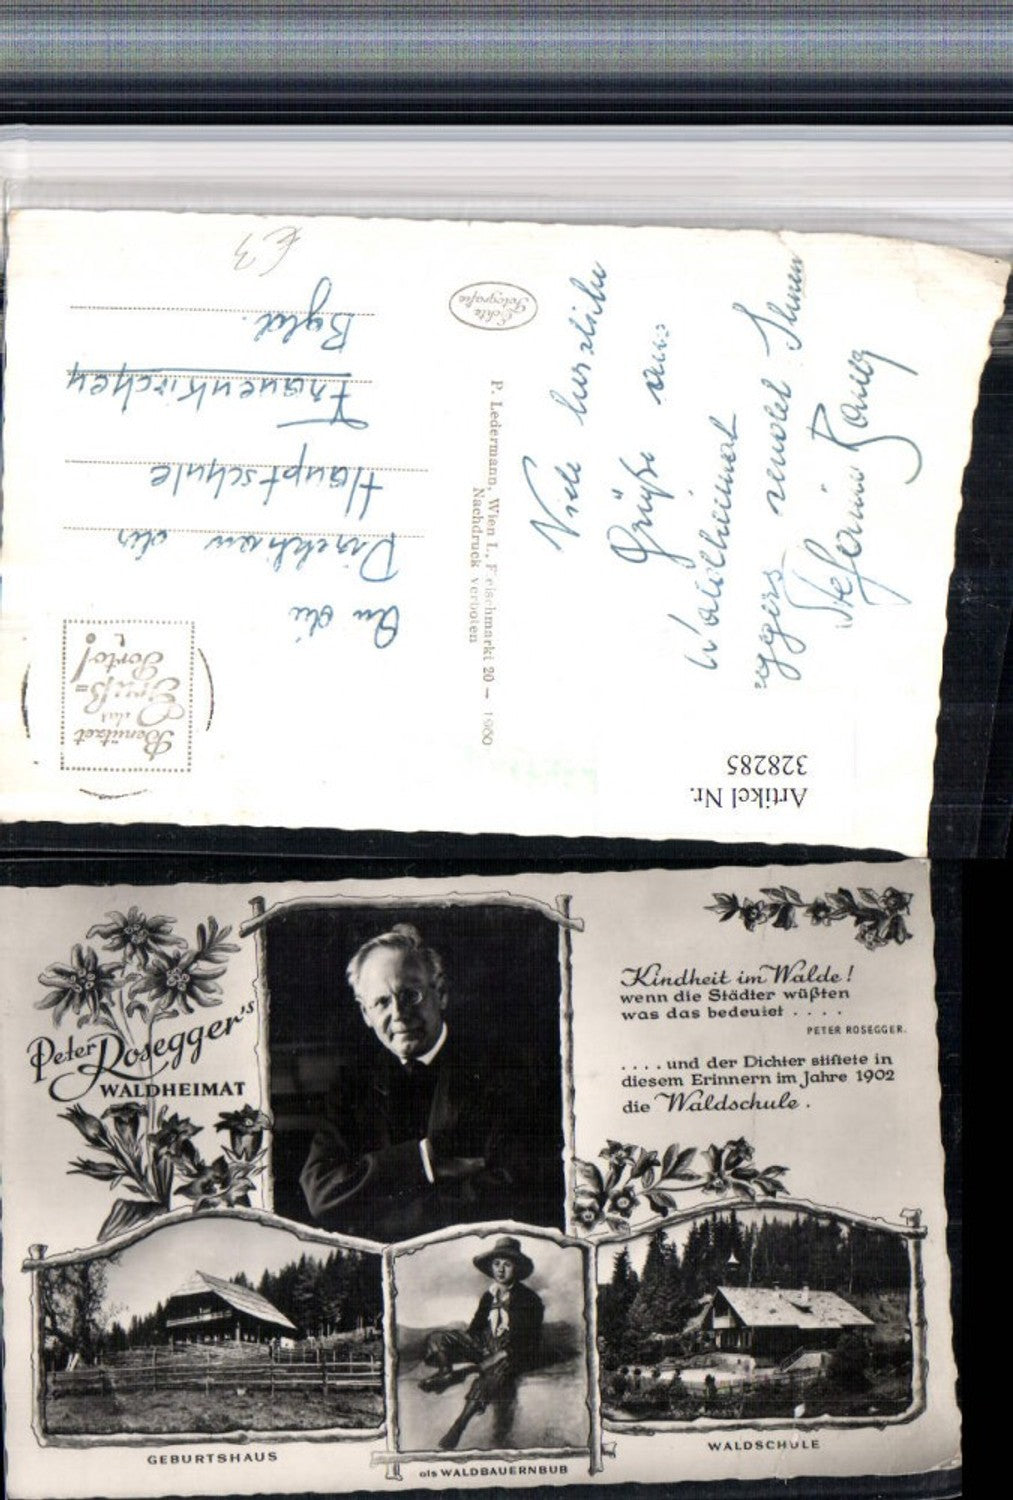 €3
An die
Direktion der
Hauptschule
Frauenkirchen
Bgld.
Benützet
das
Gruß=
Porto!
Echte
Fotografie
P. Ledermann, Wien I., Fleischmarkt 20 — 1960
Nachdruck verboten
Viele herzliche
Grüße aus
Waldheimat
sendet Ihnen
Stefanie
Artikel Nr.
328285
Peter Rosegger's
WALDHEIMAT
Kindheit im Walde!
wenn die Städter wüßten
was das bedeutet . . . .
PETER ROSEGGER.
. . . . und der Dichter stiftete in
diesem Erinnern im Jahre 1902
die Waldschule.
GEBURTSHAUS
als WALDBAUERNBUB
WALDSCHULE